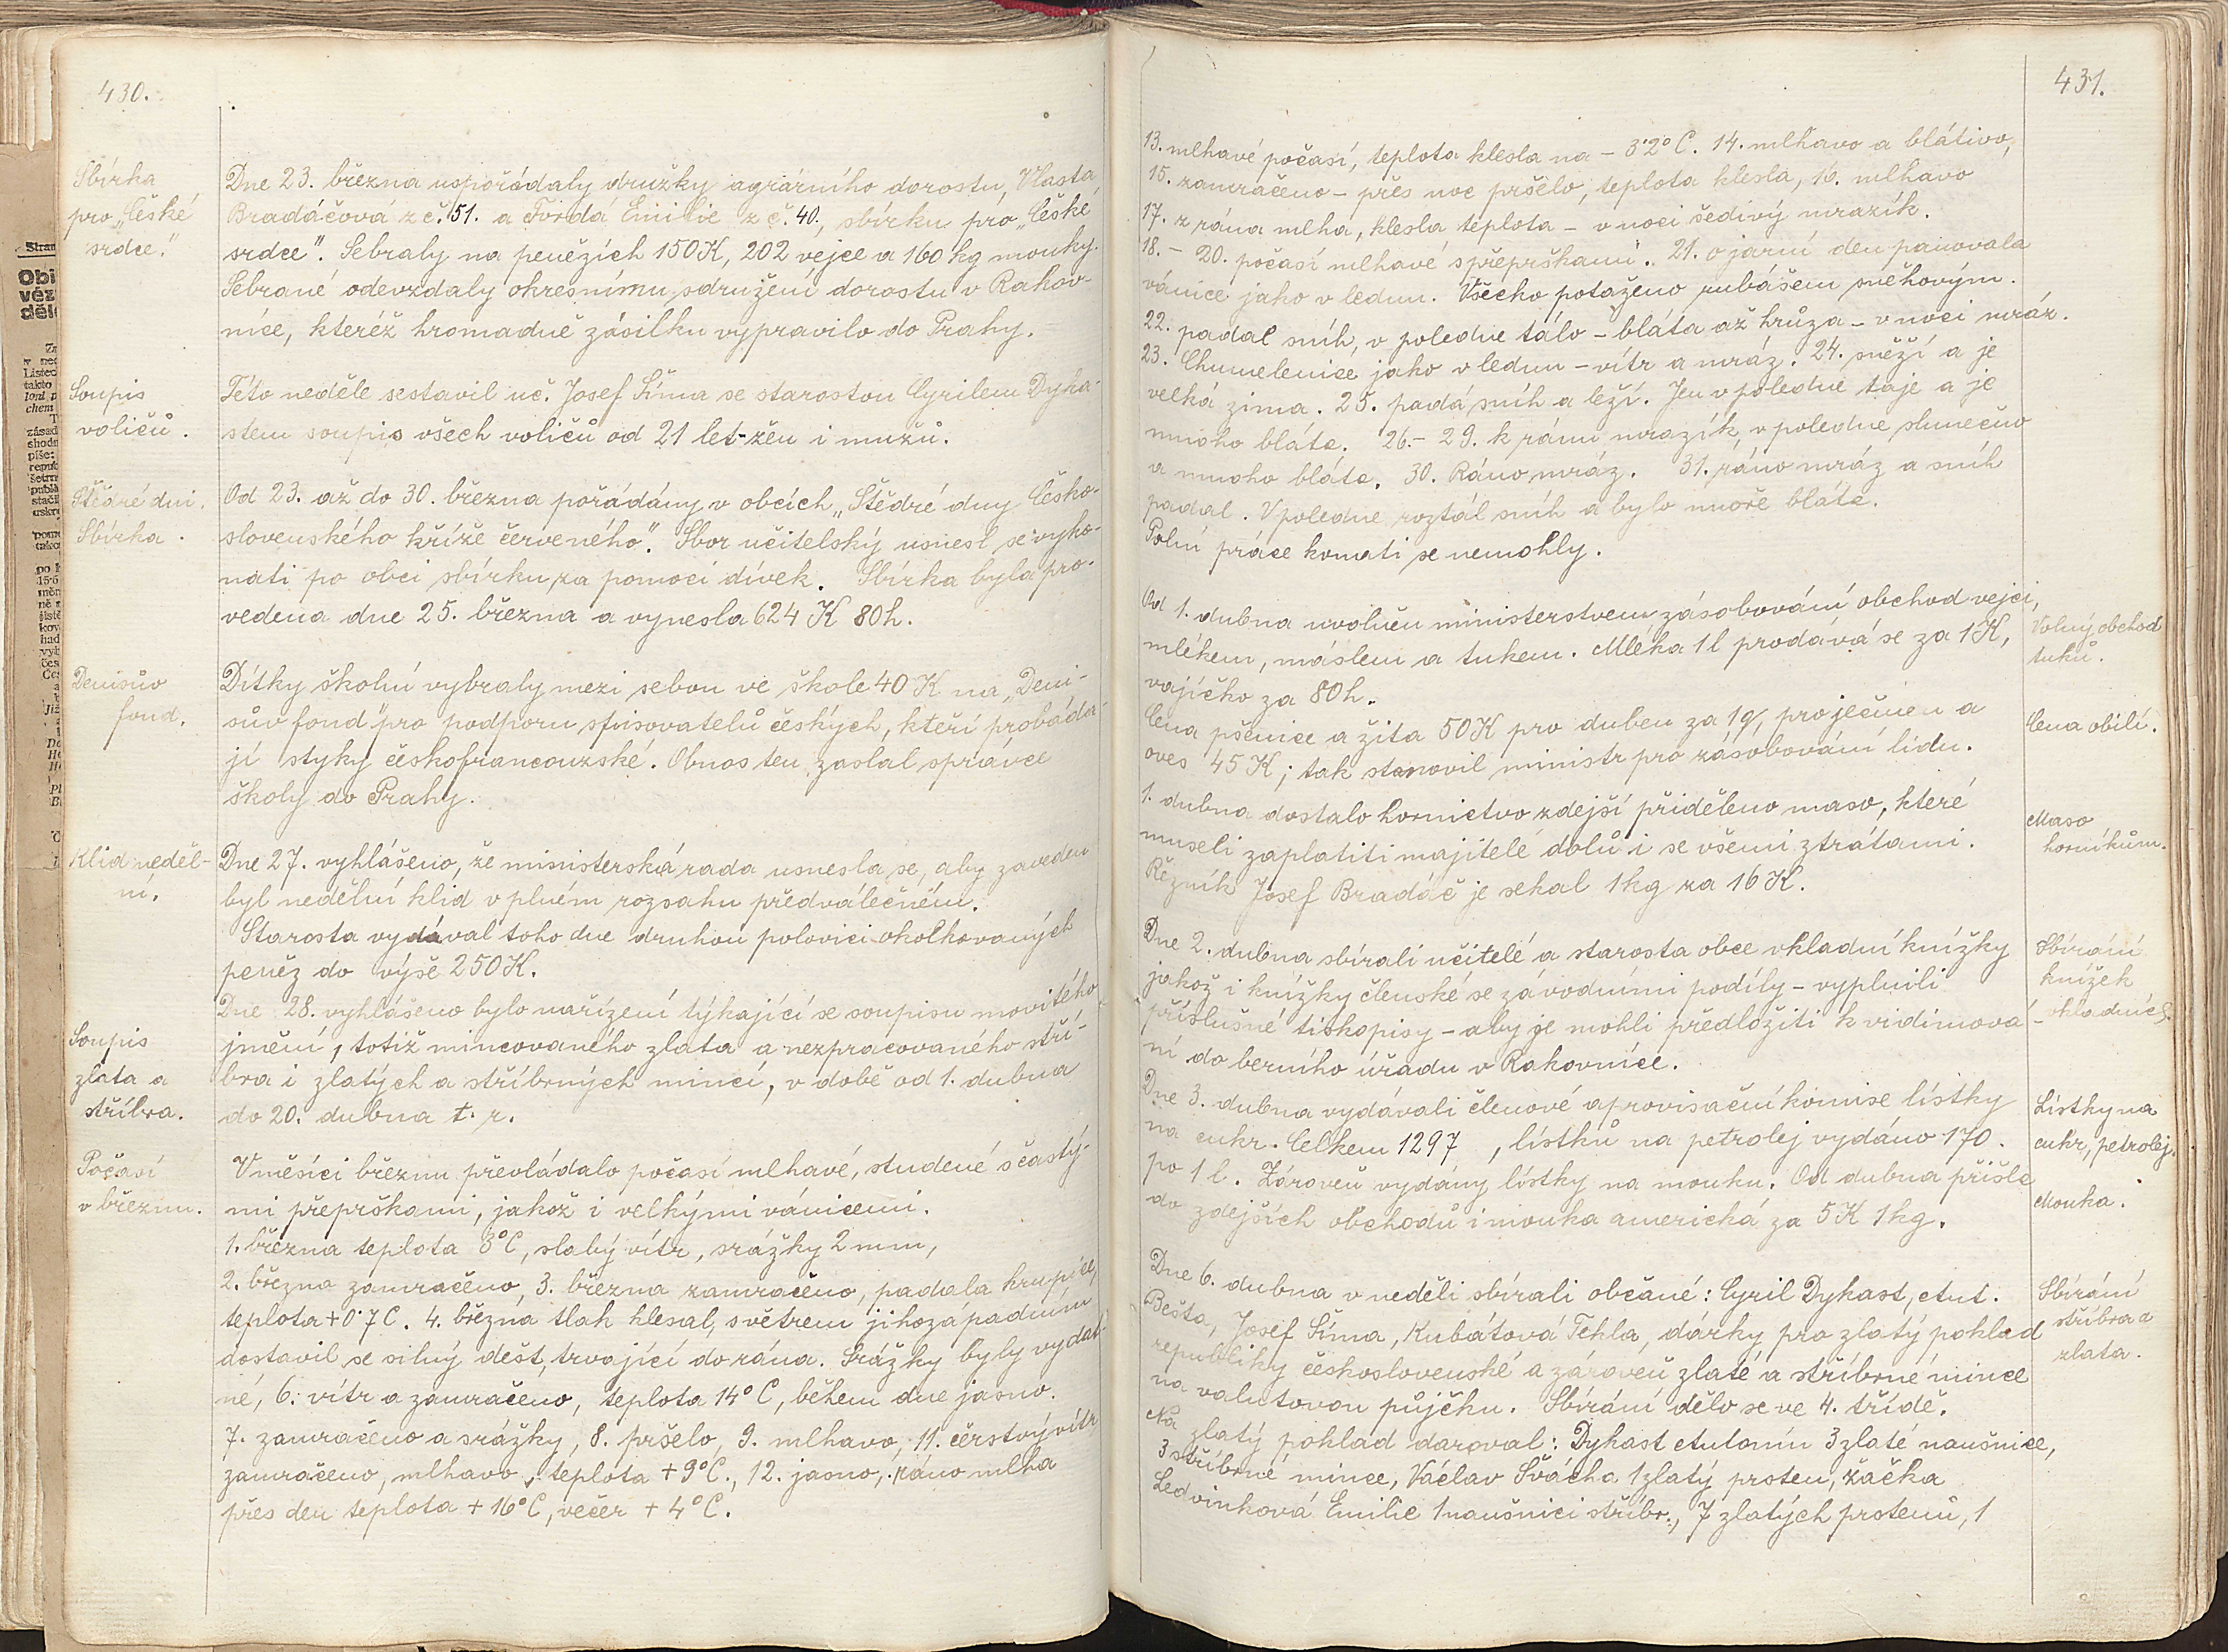 430.
Sbírka
pro „České
srdce."
Dne 23. března uspořádaly družky agrárního dorostu, Vlasta
Bradáčová z č. 51. a Tvrdá Emilie z č. 40, sbírku pro „České
srdce". Sebraly na penězích 150 K, 202 vejce a 160 kg mouky.
Sebrané odevzdaly okresnímu sdružení dorostu v Rakov-
níce, kteréž hromadně zásilku vypravilo do Prahy.
Soupis
voličů.
Této neděle sestavil uč. Josef Šíma se starostou Cyrilem Dyka-
stem soupis všech voličů od 21 let-žen i mužů.
Štědré dni.
Sbírka.
Od 23. až do 30. března pořádány v obcích „Štědré dny Česko-
slovenského kříže červeného". Sbor učitelský usnesl se vyko-
nati po obci sbírku za pomoci dívek. Sbírka byla pro-
vedena dne 25. března a vynesla 624 K 80 h.
Denisův
fond.
Dítky školní vybraly mezi sebou ve škole 40 K na „Deni-
sův fond" pro podporu spisovatelů českých, kteří probáda-
jí styky českofrancouzské. Obnos ten zaslal správce
školy do Prahy.
Klid neděl-
ní.
Dne 27. vyhlášeno, že ministerská rada usnesla se, aby zaveden
byl nedělní klid v plném rozsahu předválečném.
Starosta vydával toho dne druhou polovici okolkovaných
peněz do výše 250 K.
Soupis
zlata a
stříbra.
Dne 28. vyhlášeno bylo nařízení týkající se soupisu movitého
jmění, totiž mincovaného zlata a nezpracovaného stří-
bra i zlatých a stříbrných mincí, v době od 1. dubna
do 20. dubna t. r.
Počasí
v březnu.
V měsíci březnu převládalo počasí mlhavé, studené s častý-
mi přeprškami, jakož i velkými vánicemi.
1. března teplota 8°C, slabý vítr, srážky 2 mm,
2. března zamračeno, 3. března zamračeno, padala krupice,
teplota +0˙7 C. 4. března tlak klesal, s větrem jihozápadním
dostavil se silný dešt, trvající do rána. Srážky byly vydat-
né, 6. vítr a zamračeno, teplota 14° C, během dne jasno.
7. zamračeno a srážky, 8. pršelo, 9. mlhavo, 11. čerstvý vítr,
zamračeno, mlhavo, teplota + 9°C., 12. jasno, ráno mlha
přes den teplota + 16°C, večer + 4°C.
431.
13. mlhavé počasí, teplota klesla na - 3˙2° C. 14. mlhavo a blátivo,
15. zamračeno - přes noc pršelo, teplota klesla, 16. mlhavo
17. z rána mlha, klesla teplota - v noci šedivý mrazík.
18. - 20. počasí mlhavé s přeprškami. 21. o jarní den panovala
vánice jako v lednu. Všecko potaženo rubášem sněhovým.
22. padal sníh, v poledne tálo - bláta až hrůza - v noci mráz.
23. Chumelenice jako v lednu - vítr a mráz. 24. sněží a je
velká zima. 25. padá sníh a leží. Jen v poledne taje a je
mnoho bláta. 26.- 29. k ránu mrazík, v poledne slunečno
a mnoho bláta. 30. Ráno mráz. 31. ráno mráz a sníh
padal. V poledne roztál sníh a bylo moře bláta.
Polní práce konati se nemohly.
Od 1. dubna uvolněn ministerstvem zásobování obchod vejci,
mlékem, máslem a tukem. Mléka 1 l prodává se za 1 K,
vajíčko za 80 h.
Volný obchod
tuků.
Cena pšenice a žita 50 K pro duben za 1 q, pro ječmen a
oves 45 K; tak stanovil ministr pro zásobování lidu.
Cena obilí.
1. dubna dostalo hornictvo zdejší přiděleno maso, které
museli zaplatiti majitelé dolů i se všemi ztrátami.
Řezník Josef Bradáč je sekal 1 kg za 16 K.
Maso
horníkům.
Dne 2. dubna sbírali učitelé a starosta obce vkladní knížky
jakož i knížky členské se závodními podíly - vyplnili
příslušné tiskopisy - aby je mohli předložiti k vidimová-
ní do berního úřadu v Rakovníce.
Sbírání
knížek
vkladních.
Dne 3. dubna vydávali členové aprovisační komise lístky
na cukr. Celkem 1297 , lístků na petrolej vydáno 170.
po 1 l. Zároveň vydány lístky na mouku. Od dubna přišla
do zdejších obchodů i mouka americká za 5 K 1 kg.
Lístky na
cukr, petrolej.
Mouka.
Dne 6. dubna v neděli sbírali občané: Cyril Dykast, Ant.
Bešta, Josef Šíma, Kubátová Tekla, dárky pro zlatý poklad
republiky československé a zároveň zlaté a stříbrné mince
na valutovou půjčku. Sbírání dělo se ve 4. třídě.
Sbírání
stříbra a
zlata.
Na zlatý poklad daroval: Dykast Antonín 3 zlaté naušnice,
3 stříbrné mince, Václav Švácha 1 zlatý prsten, žačka
Ledvinková Emilie 1 naušnici stříbr., 7 zlatých prstenů, 1